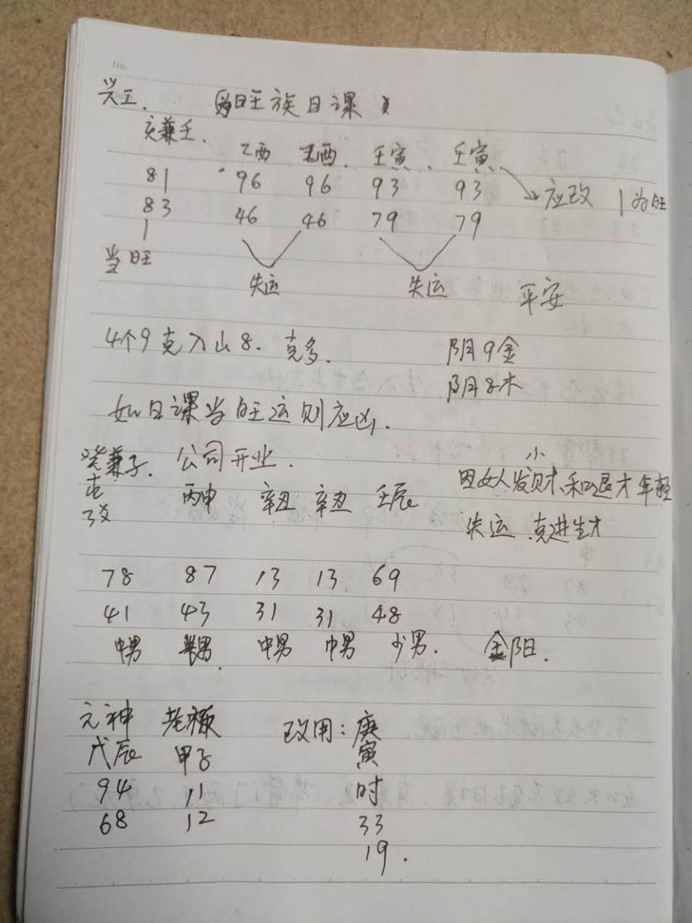 No.
兴工. 旺族日课
亥兼壬. 乙酉 酉. 壬寅. 壬寅
81 96 96 93 93 应改 1为旺
83 46 46 79 79
1
当旺
失运 失运 平安
4个9克入山8. 克多. 阴9金
阴8木
如日课当旺运则应凶.
癸兼子. 公司开业. 小
因女人发财 年轻
丙申 辛丑 辛丑 壬辰
失运 克进生才
78 87 13 13 69
41 43 31 31 48
中男 男 中男 中男 少男. 金阳.
元神 老板 改用: 庚
戊辰 甲子 寅
94 11 时
68 12 33
19.